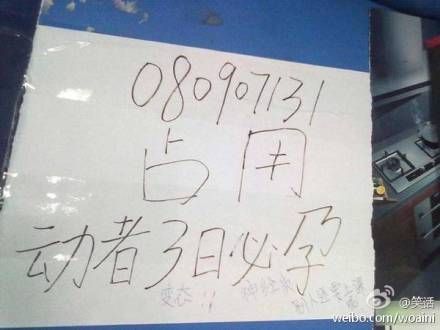 080907131
占用
动者3日必孕
变态!! 神经病
@笑活
weibo.com/woaini